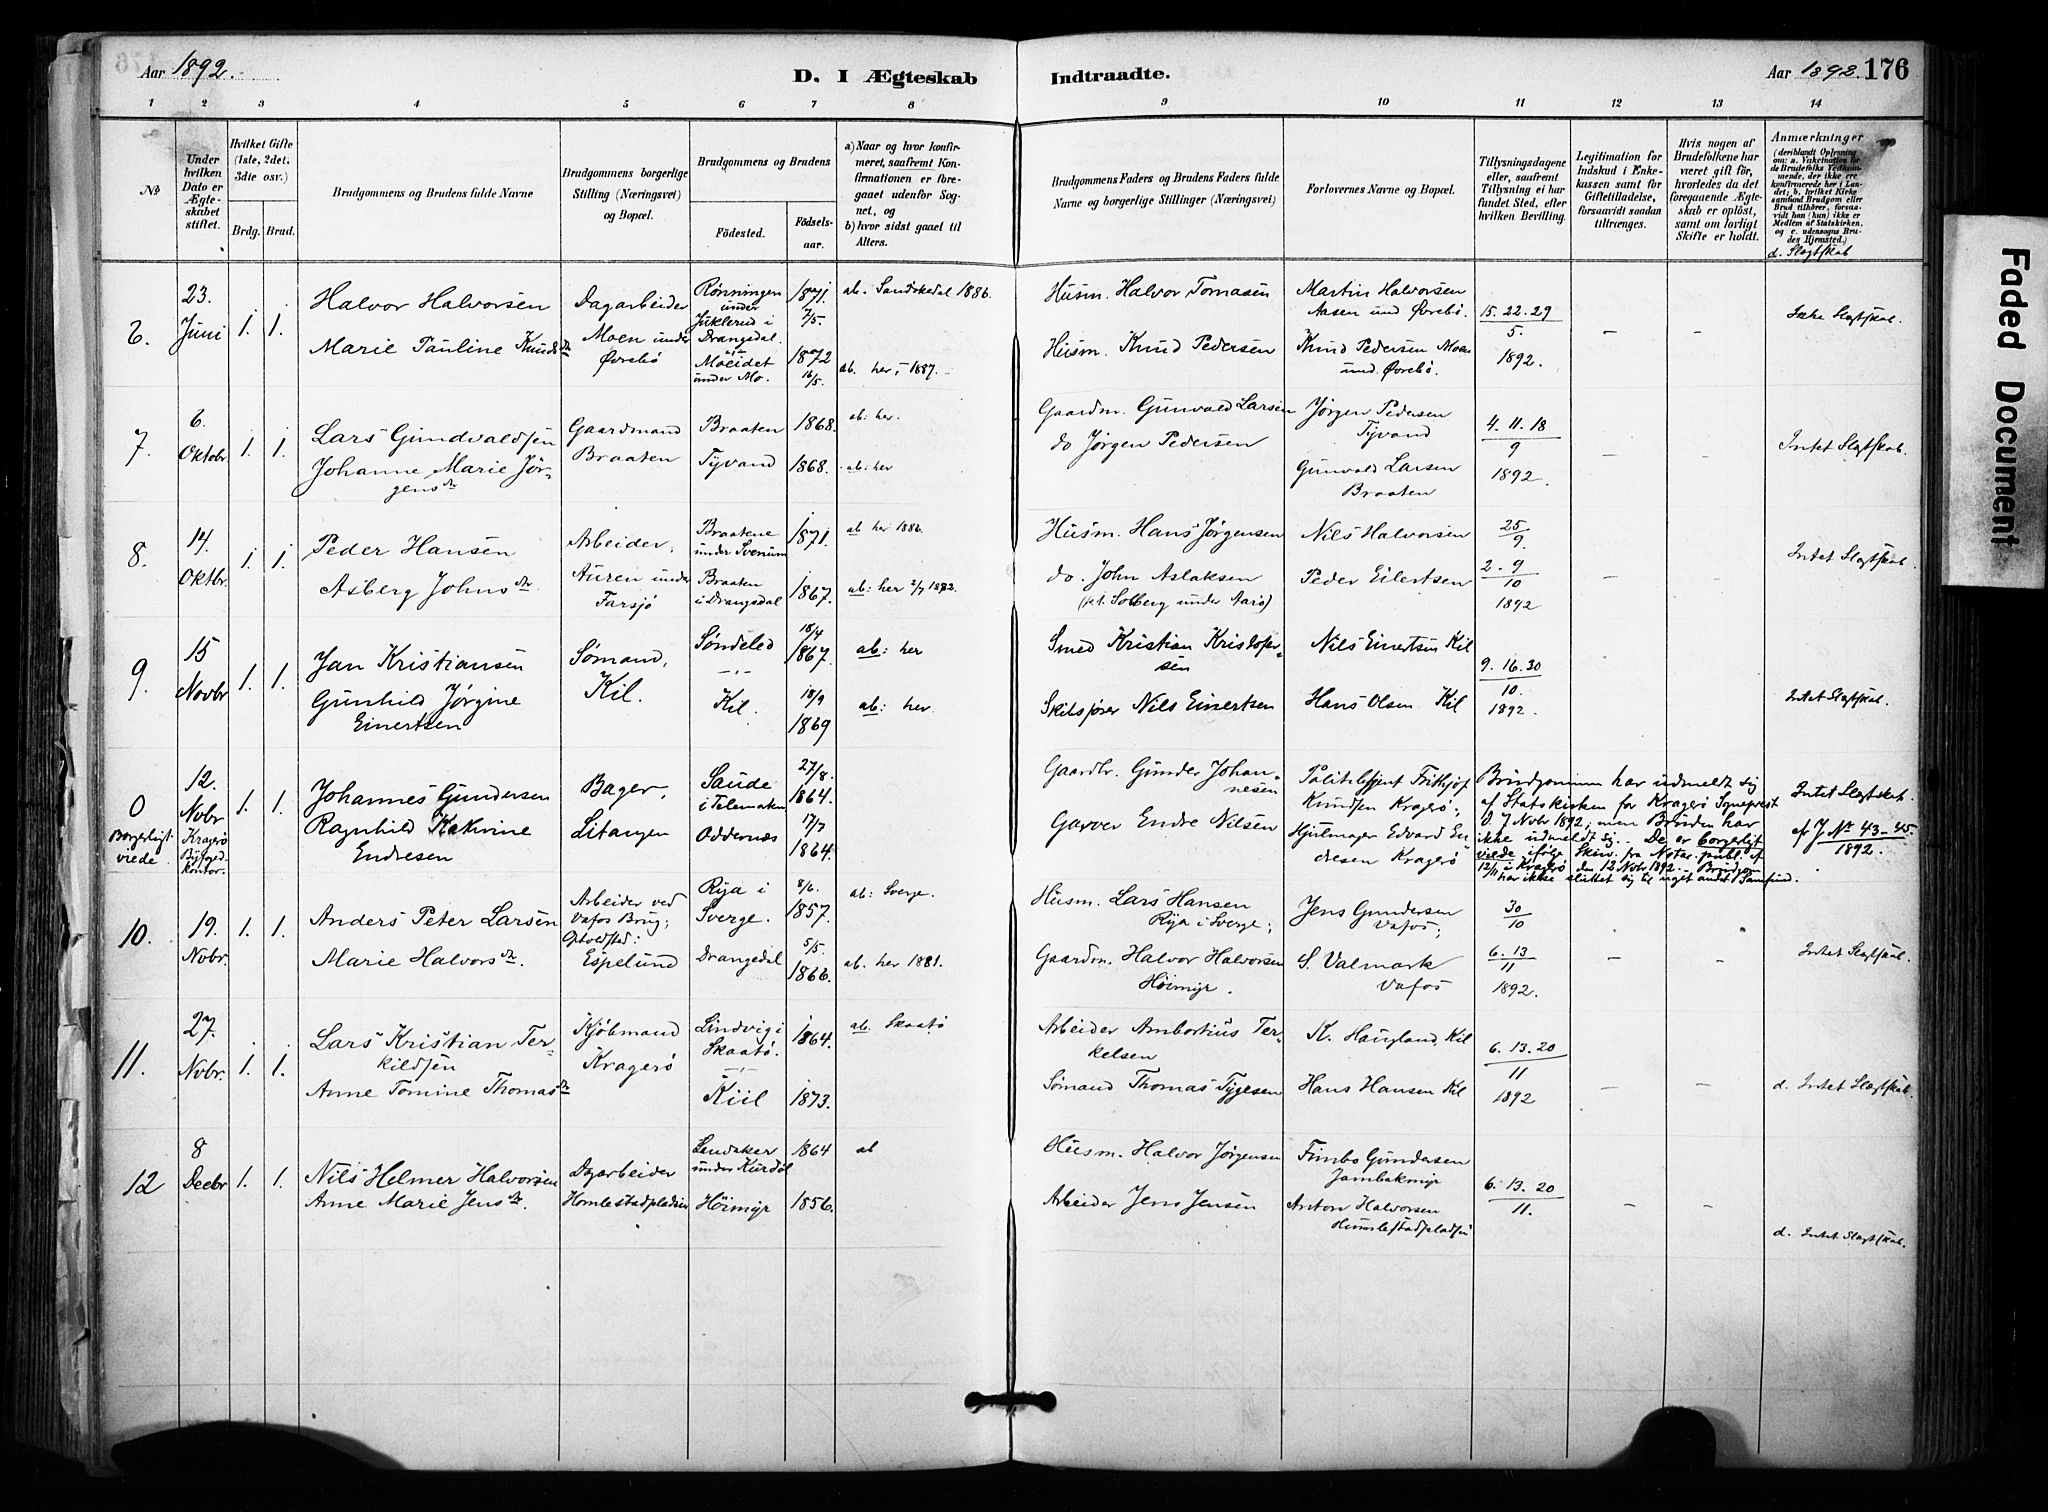 Aar 1892.
D. I Ægteskab
Indtraadte.
Aar 1892.
176
1 2 3 4 5 6 7 8 9 10 11 12 13 14
No
Under hvilken Dato er Ægteskabet stiftet.
Hvilket Gifte (1ste, 2det, 3die osv.)
Brdg. Brud.
Brudgommens og Brudens fulde Navne
Brudgommens borgerlige Stilling (Næringsvei) og Bopæl.
Brudgommens og Brudens
Födested.
Födselsaar.
a) Naar og hvor konfirmeret, saafremt Konfirmationen er foregaaet udenfor Sognet, og
b) hvor sidst gaaet til Alters.
Brudgommens Faders og Brudens Faders fulde Navne og borgerlige Stillinger (Næringsvei)
Forlovernes Navne og Bopæl.
Tillysningsdagene eller, saafremt Tillysning ei har fundet Sted, efter hvilken Bevilling.
Legitimation for Indskud i Enkekassen samt for Giftetilladelse, forsaavidt saadan tiltrænges.
Hvis nogen af Brudefolkene har været gift før, hvorledes da det foregaaende Ægteskab er oplöst, samt om lovligt Skifte er holdt.
Anmærkninger (deriblandt Oplysning om: a. Vakcination for de Brudefolks Vedkommende, der ikke ere konfirmerede her i Landet; b. hvilket Kirkesamfund Brudgom eller Brud tilhörer, forsaavidt han (hun) ikke er Medlem af Statskirken, og c. udensogns Brudes Hjemsted.)
d. Slægtskab
6. 23. Juni 1. 1.
Halvor Halvorsen
Marie Pauline Knudsdtr
Dagarbeider
Moen under Øvrebö
Rønningen under Juklerud i Drangedal.
1871. 7/5.
under Mo.
1872 16/5.
ab. Sandökedal 1886.
ab. her, 1887.
Husm. Halvor Tomasen
Husm. Knud Pedersen
Martin Halvorsen
Aasen und Øvrebö.
Knud Pedersen Moen
und. Øvrebö.
15. 22. 29
5.
1892.
– –
Ikke Slegtskab.
7. 6. Oktobr. 1. 1.
Lars Gundvaldsen
Johanne Marie Jör-
gensdtr
Gaardmand
Braaten
Braaten 1868. ab: her.
Tyvand 1868. ab: her
Gaardm. Gunvald Larsen
do Jørgen Pedersen
Jørgen Pedersen
Tyvand
Gunvald Larsen
Braaten
4. 11. 18
9
1892.
– –
Intet Slegtskab.
8. 14. Oktbr. 1. 1.
Peder Hansen
Asberg Johnsdtr
Arbeider,
Auren under
Farsjö
Braatene
under Svenum
1871. ab her 1886.
Braaten
i Drangedal
1867. ab: her 2/7 1882.
Husm. Hans Jørgensen
do. John Aslaksen
Nils Halvorsen
Peder Eilertsen
25/9.
2 - 9
10
1892
– –
Intet Slegtskab.
9. 15 Novbr 1. 1.
Jan Kristiansen
Gunhild Jørgine
Einertsen
Sømand,
Kil.
Søndeled 18/4 1867. ab: her
Kil. 18/9 1869 ab: her.
Smed Kristian Kristofer-
sen
Skibsfører Nils Einertsen
Nils Einertsen Kil
Hans Olsen Kil
9. 16. 30
10.
1892.
Intet Slegtskab.
0
Borgerligt
viede
12. Nobr
Kragerö
Byfoged-
kontor.
1. 1.
Johannes Gundersen
Ragnhild Kathrine
Endresen
Bager,
Litangen
Saude
i Telemaken
27/8. 1864.
Oddernæs 17/7 1864.
Gaardbr. Gunder Johan-
nesen
Garver Endre Nilsen
Politibetjent Frithjof
Knudsen Kragerö;
Hjulmager Edvard En-
dresen Kragerö
Brudgommen har udmeldt sig
af Statskirken for Kragerö Sognepræst
d. 7 Novbr 1892; men Bruden har
ikke udmeldt sig. De er borgerligt
viede ifølge Skriv. fra Notar. publ. af
12/11 i Kragerö den 12 Nobr. 1892. Brudgom
har ikke sluttet sig til noget andet Samfund.
Intet Slegtskab.
cf J No 43-45.
1892.
10. 19. Nobr. 1. 1.
Anders Peter Larsen
Marie Halvorsdtr.
Arbeider ved
Vafos Brug;
Opholdsted:
Espelund
Rya i
Sverge.
8/6. 1857. ab: Sverge.
Drangedal 5/5 1866. ab. her 1881.
Husm. Lars Hansen
Rya i Sverge;
Gaardm. Halvor Halvorsen
Höimyr.
Jens Gundersen
Vafos;
S. Valmark
Vafos
30/10
6. 13
11
1892.
– –
Intet Slegtskab.
11. 27. Nobr. 1. 1.
Lars Kristian Ter-
kildsen
Anne Tomine Thomasdtr
Kjöbmand
Kragerö
Lindvig i
Skaatö.
1864. ab. Skaatö
Kiil 1873.
Arbeider Ambortius Ter-
kelsen
Sømand Thomas Tygesen
K. Haugland, Kil
Hans Hansen Kil
6. 13. 20
11
1892
– –
d. Intet Slegtskab.
12 8 Decbr 1. 1.
Nils Helmer Halvorsen
Anne Marie Jensdtr.
Dagarbeider
Homlestadpladsen
Landaker
under Kurdöl
1864 ab
Höimyr 1856.
Husm. Halvor Jørgensen
Arbeider Jens Jensen
Fimbo Gundersen
Jambakmyr
Anton Halvorsen
Humlestadpladsen
6. 13. 20
11.
– –
d. Intet Slegtskab.
Faded Document